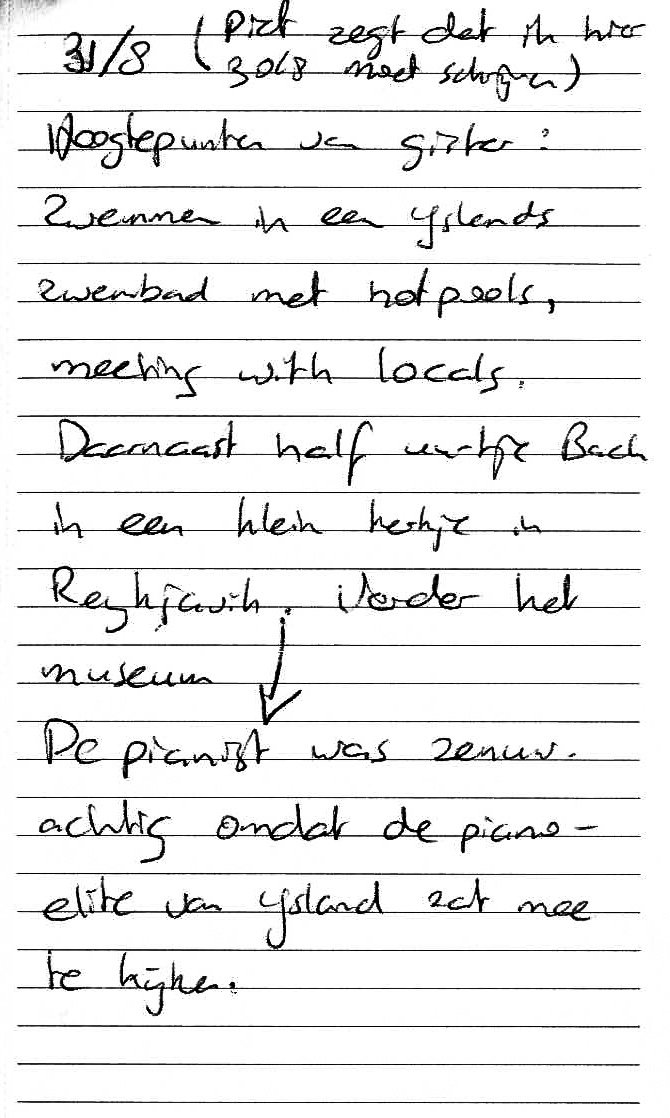 31/8 (Piet zegt dat ik hier
30/8 moet schrijven)
Hoogtepunten van gister:
Zwemmen in een IJslands
zwembad met hotpools,
meeting with locals.
Daarnaast half uurtje Bach
in een klein kerkje in
Reykjavik. Verder het
museum
De pianist was zenuw-
achtig omdat de piano-
elite van IJsland zat mee
te kijken.